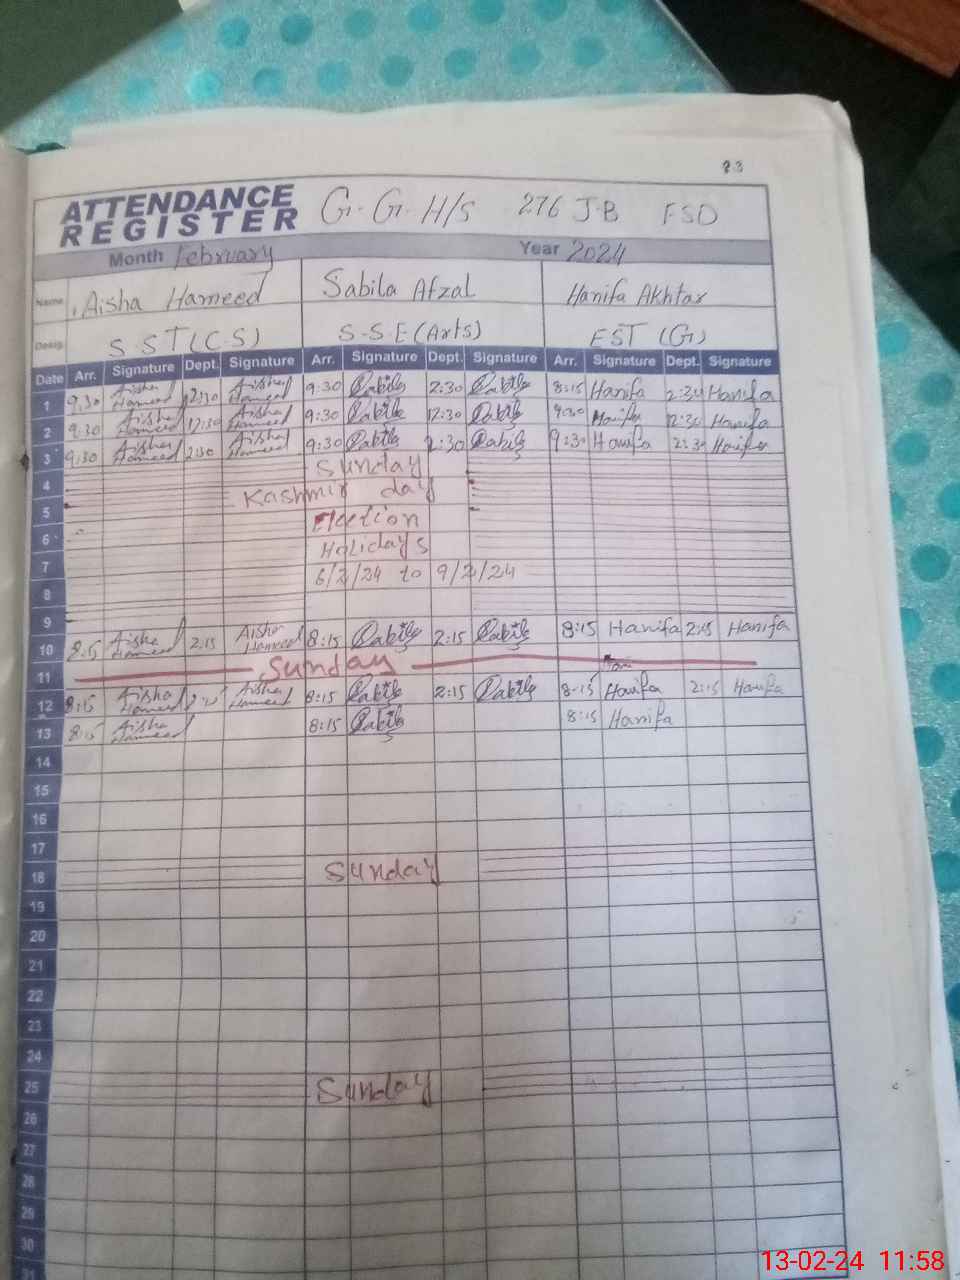 23
ATTENDANCE REGISTER G.G.H/S 276 J-B FSD
Month February Year 2024
Name Aisha Hameed Sabila Afzal Hanifa Akhtar
Desig. S ST (C-S) S-S-E (Arts) EST (G)
Date Arr. Signature Dept. Signature Arr. Signature Dept. Signature Arr. Signature Dept. Signature
1 9:30 Aisha Hameed 2:30 Aisha Hameed 9:30 2:30 8:15 Hanifa 2:30 Hanifa
2 9:30 Aisha Hameed 12:30 Aisha Hameed 9:30 12:30 9:30 Hanifa 12:30 Hanifa
3 9:30 Aisha Hameed 2:30 Aisha Hameed 9:30 2:30 9:30 Hanifa 2:30 Hanifa
4 Sunday
5 Kashmir day
6 Election
7 Holidays
8 6/2/24 to 9/2/24
9
10 8:15 Aisha Hameed 2:15 Aisha Hameed 8:15 2:15 8:15 Hanifa 2:15 Hanifa
11 Sunday
12 8:15 Aisha Hameed Aisha Hameed 8:15 2:15 8:15 Hanifa 2:15 Hanifa
13 8:15 Aisha Hameed 8:15 8:15 Hanifa
14
15
16
17
18 Sunday
19
20
21
22
23
24
25 Sunday
26
27
28
29
30
31
13-02-24 11:58